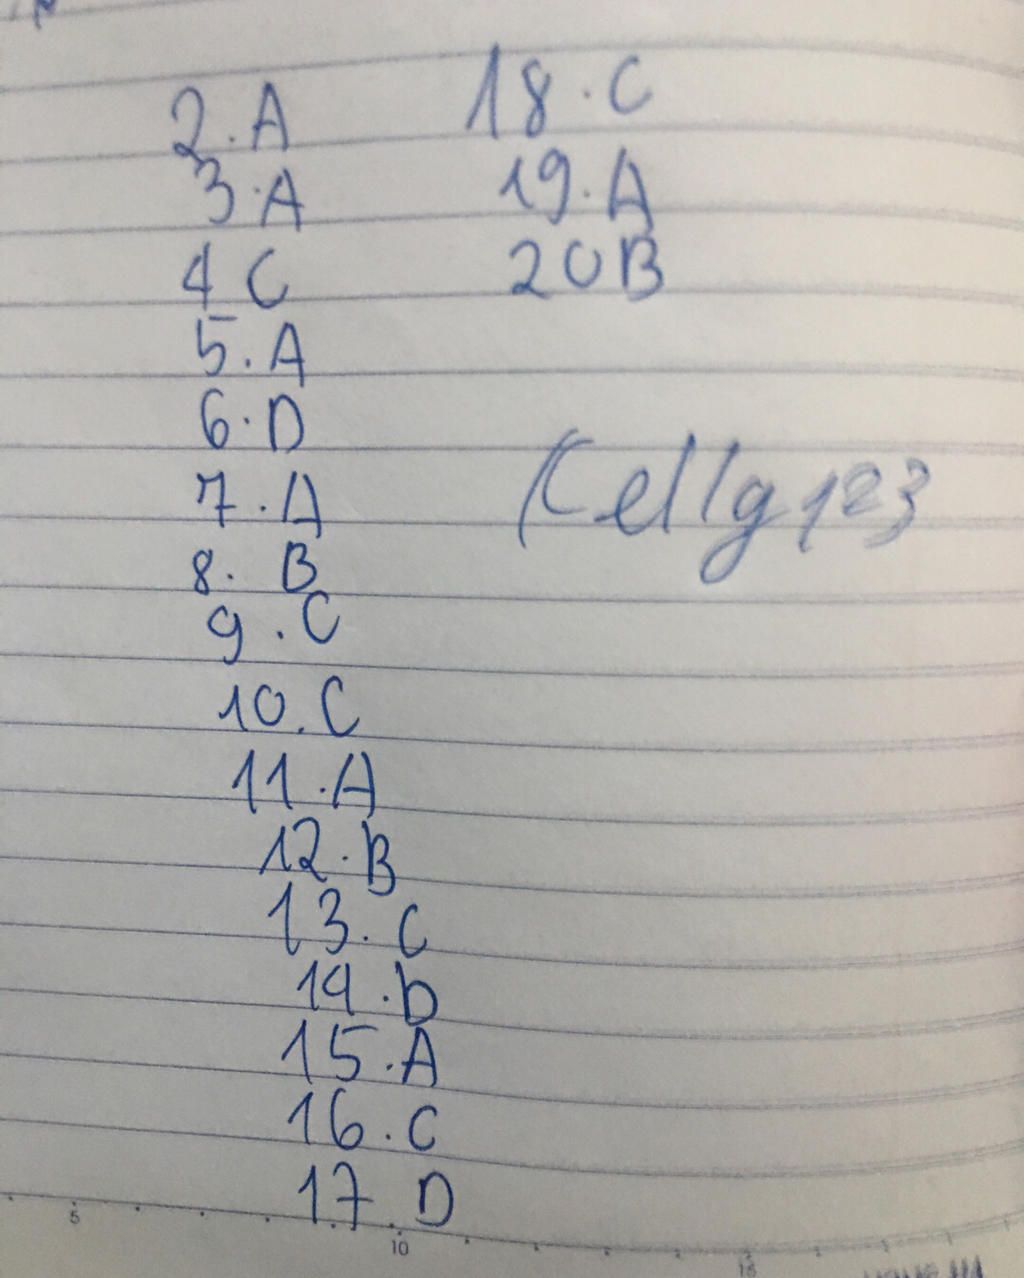 2. A
3. A
4 C
5. A
6. D
7. A
8. B
9. C
10. C
11. A
12. B
13. C
14. D
15. A
16. C
17 D
18. C
19. A
20 B
5
10
15